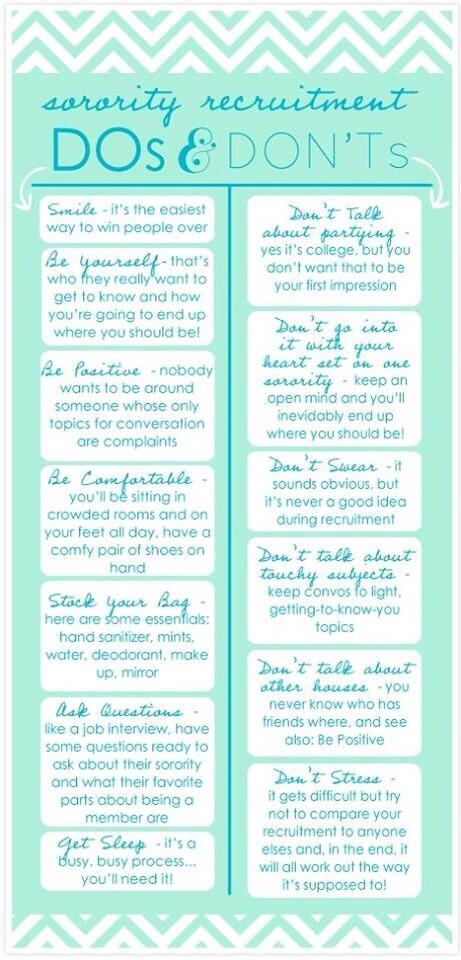 sorority recruitment
DOs & DON'Ts
Smile - it's the easiest
way to win people over
Be Yourself - that's
who they really want to
get to know and how
you're going to end up
where you should be!
Be Positive - nobody
wants to be around
someone whose only
topics for conversation
are complaints
Be Comfortable -
you'll be sitting in
crowded rooms and on
your feet all day, have a
comfy pair of shoes on
hand
Stock Your Bag -
here are some essentials:
hand sanitizer, mints,
water, deodorant, make
up, mirror
Ask Questions -
like a job interview, have
some questions ready to
ask about their sorority
and what their favorite
parts about being a
member are
Get Sleep - it's a
busy, busy process...
you'll need it!
Don't Talk
about partying -
yes it's college, but you
don't want that to be
your first impression
Don't go into
it with your
heart set on one
sorority - keep an
open mind and you'll
inevidably end up
where you should be!
Don't Swear - it
sounds obvious, but
it's never a good idea
during recruitment
Don't talk about
touchy subjects -
keep convos to light,
getting-to-know-you
topics
Don't talk about
other houses - you
never know who has
friends where, and see
also: Be Positive
Don't Stress -
it gets difficult but try
not to compare your
recruitment to anyone
elses and, in the end, it
will all work out the way
it's supposed to!